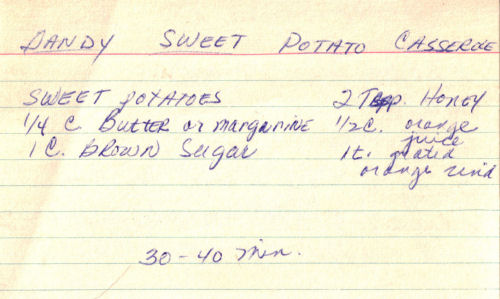 DANDY SWEET POTATO CASSEROLE
SWEET POTATOES
1/4 C. BUTTER or margarine
1 C. BROWN Sugar
2 Tbsp. HONEY
1/2 C. orange
juice
1 t. grated
orange rind
30-40 min.